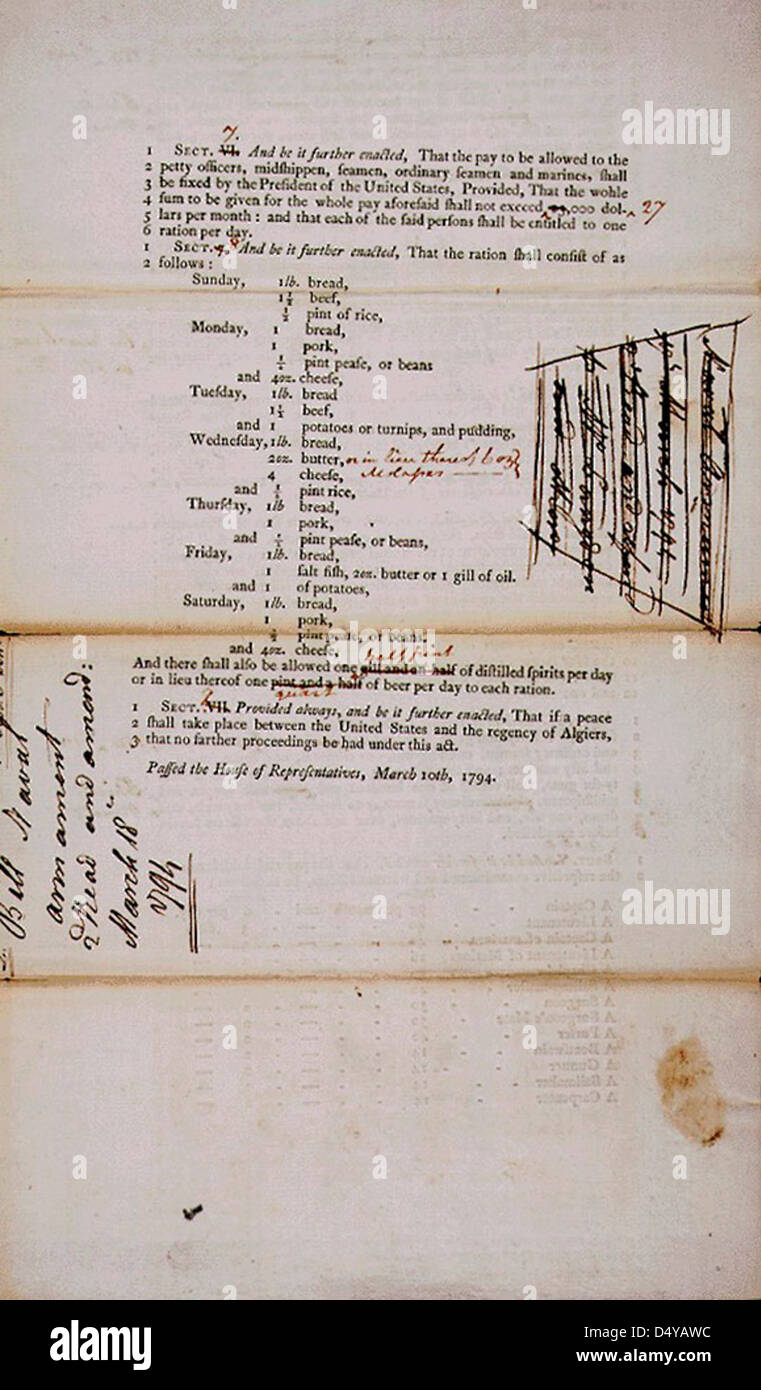 7.
1 SECT. VI. And be it further enacted, That the pay to be allowed to the
2 petty officers, midſhippen, ſeamen, ordinary ſeamen and marines, ſhall
3 be fixed by the Preſident of the United States, Provided, That the wohle
4 ſum to be given for the whole pay aforeſaid ſhall not exceed ,000 dol- 27
5 lars per month : and that each of the ſaid perſons ſhall be entitled to one
6 ration per day.
1 SECT. 8 And be it further enacted, That the ration ſhall conſiſt of as
2 follows :
Sunday, 1lb. bread,
1½ beef,
½ pint of rice,
Monday, 1 bread,
1 pork,
½ pint peaſe, or beans
and 4oz. cheeſe,
Tueſday, 1lb. bread
1½ beef,
and 1 potatoes or turnips, and pudding,
Wedneſday, 1lb. bread,
2oz. butter, or in lieu thereof 6 oz
4 cheeſe, Molaſses
and ½ pint rice,
Thurſday, 1lb bread,
1 pork,
and ½ pint peaſe, or beans,
Friday, 1lb. bread,
1 ſalt fiſh, 2oz. butter or 1 gill of oil.
and 1 of potatoes,
Saturday, 1lb. bread,
1 pork,
½ pint peaſe, or beans.
and 4oz. cheeſe, half pint
And there ſhall alſo be allowed one gill and an half of diſtilled ſpirits per day
or in lieu thereof one pint and a half of beer per day to each ration.
quart
1 SECT. VII. Provided always, and be it further enacted, That if a peace
2 ſhall take place between the United States and the regency of Algiers,
3 that no farther proceedings be had under this act.
Paſſed the Houſe of Repreſentatives, March 10th, 1794.
Bill Naval
armament
2d Read and amend:
March 18
1794
alamy
alamy
a
D4YAWC
www.alamy.com